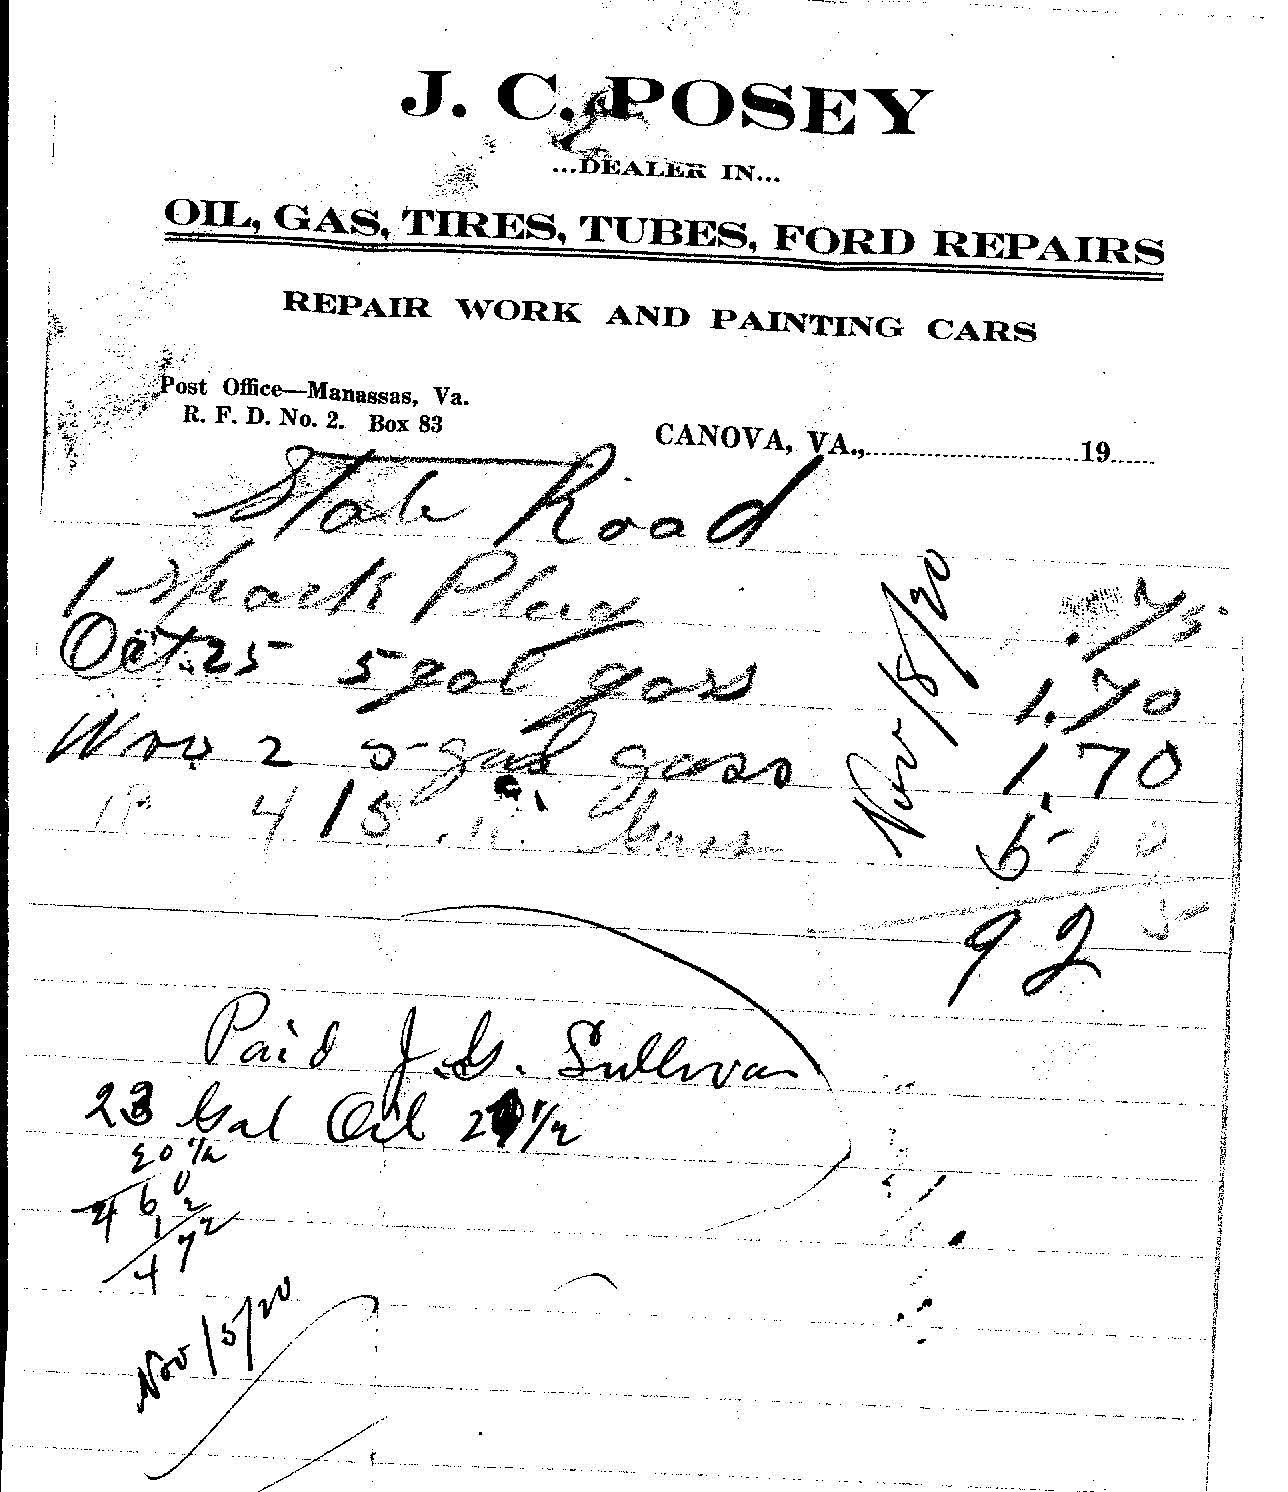 J. C. POSEY
...DEALER IN...
OIL, GAS, TIRES, TUBES, FORD REPAIRS
REPAIR WORK AND PAINTING CARS
Post Office—Manassas, Va.
R. F. D. No. 2. Box 83
CANOVA, VA.,.......................... 19......
State Road
1 Spark Plug .75
Oct. 25 5 gal gass 1.70
Nov 2 5 gal gass 1.70
4 15 " Gass 5 10
Nov/8/20
9 25
Paid J. G. Sullivan
23 Gal Oil 20 1/2
20 1/2
4 6 0
1 2
4 7 2
Nov/5/20